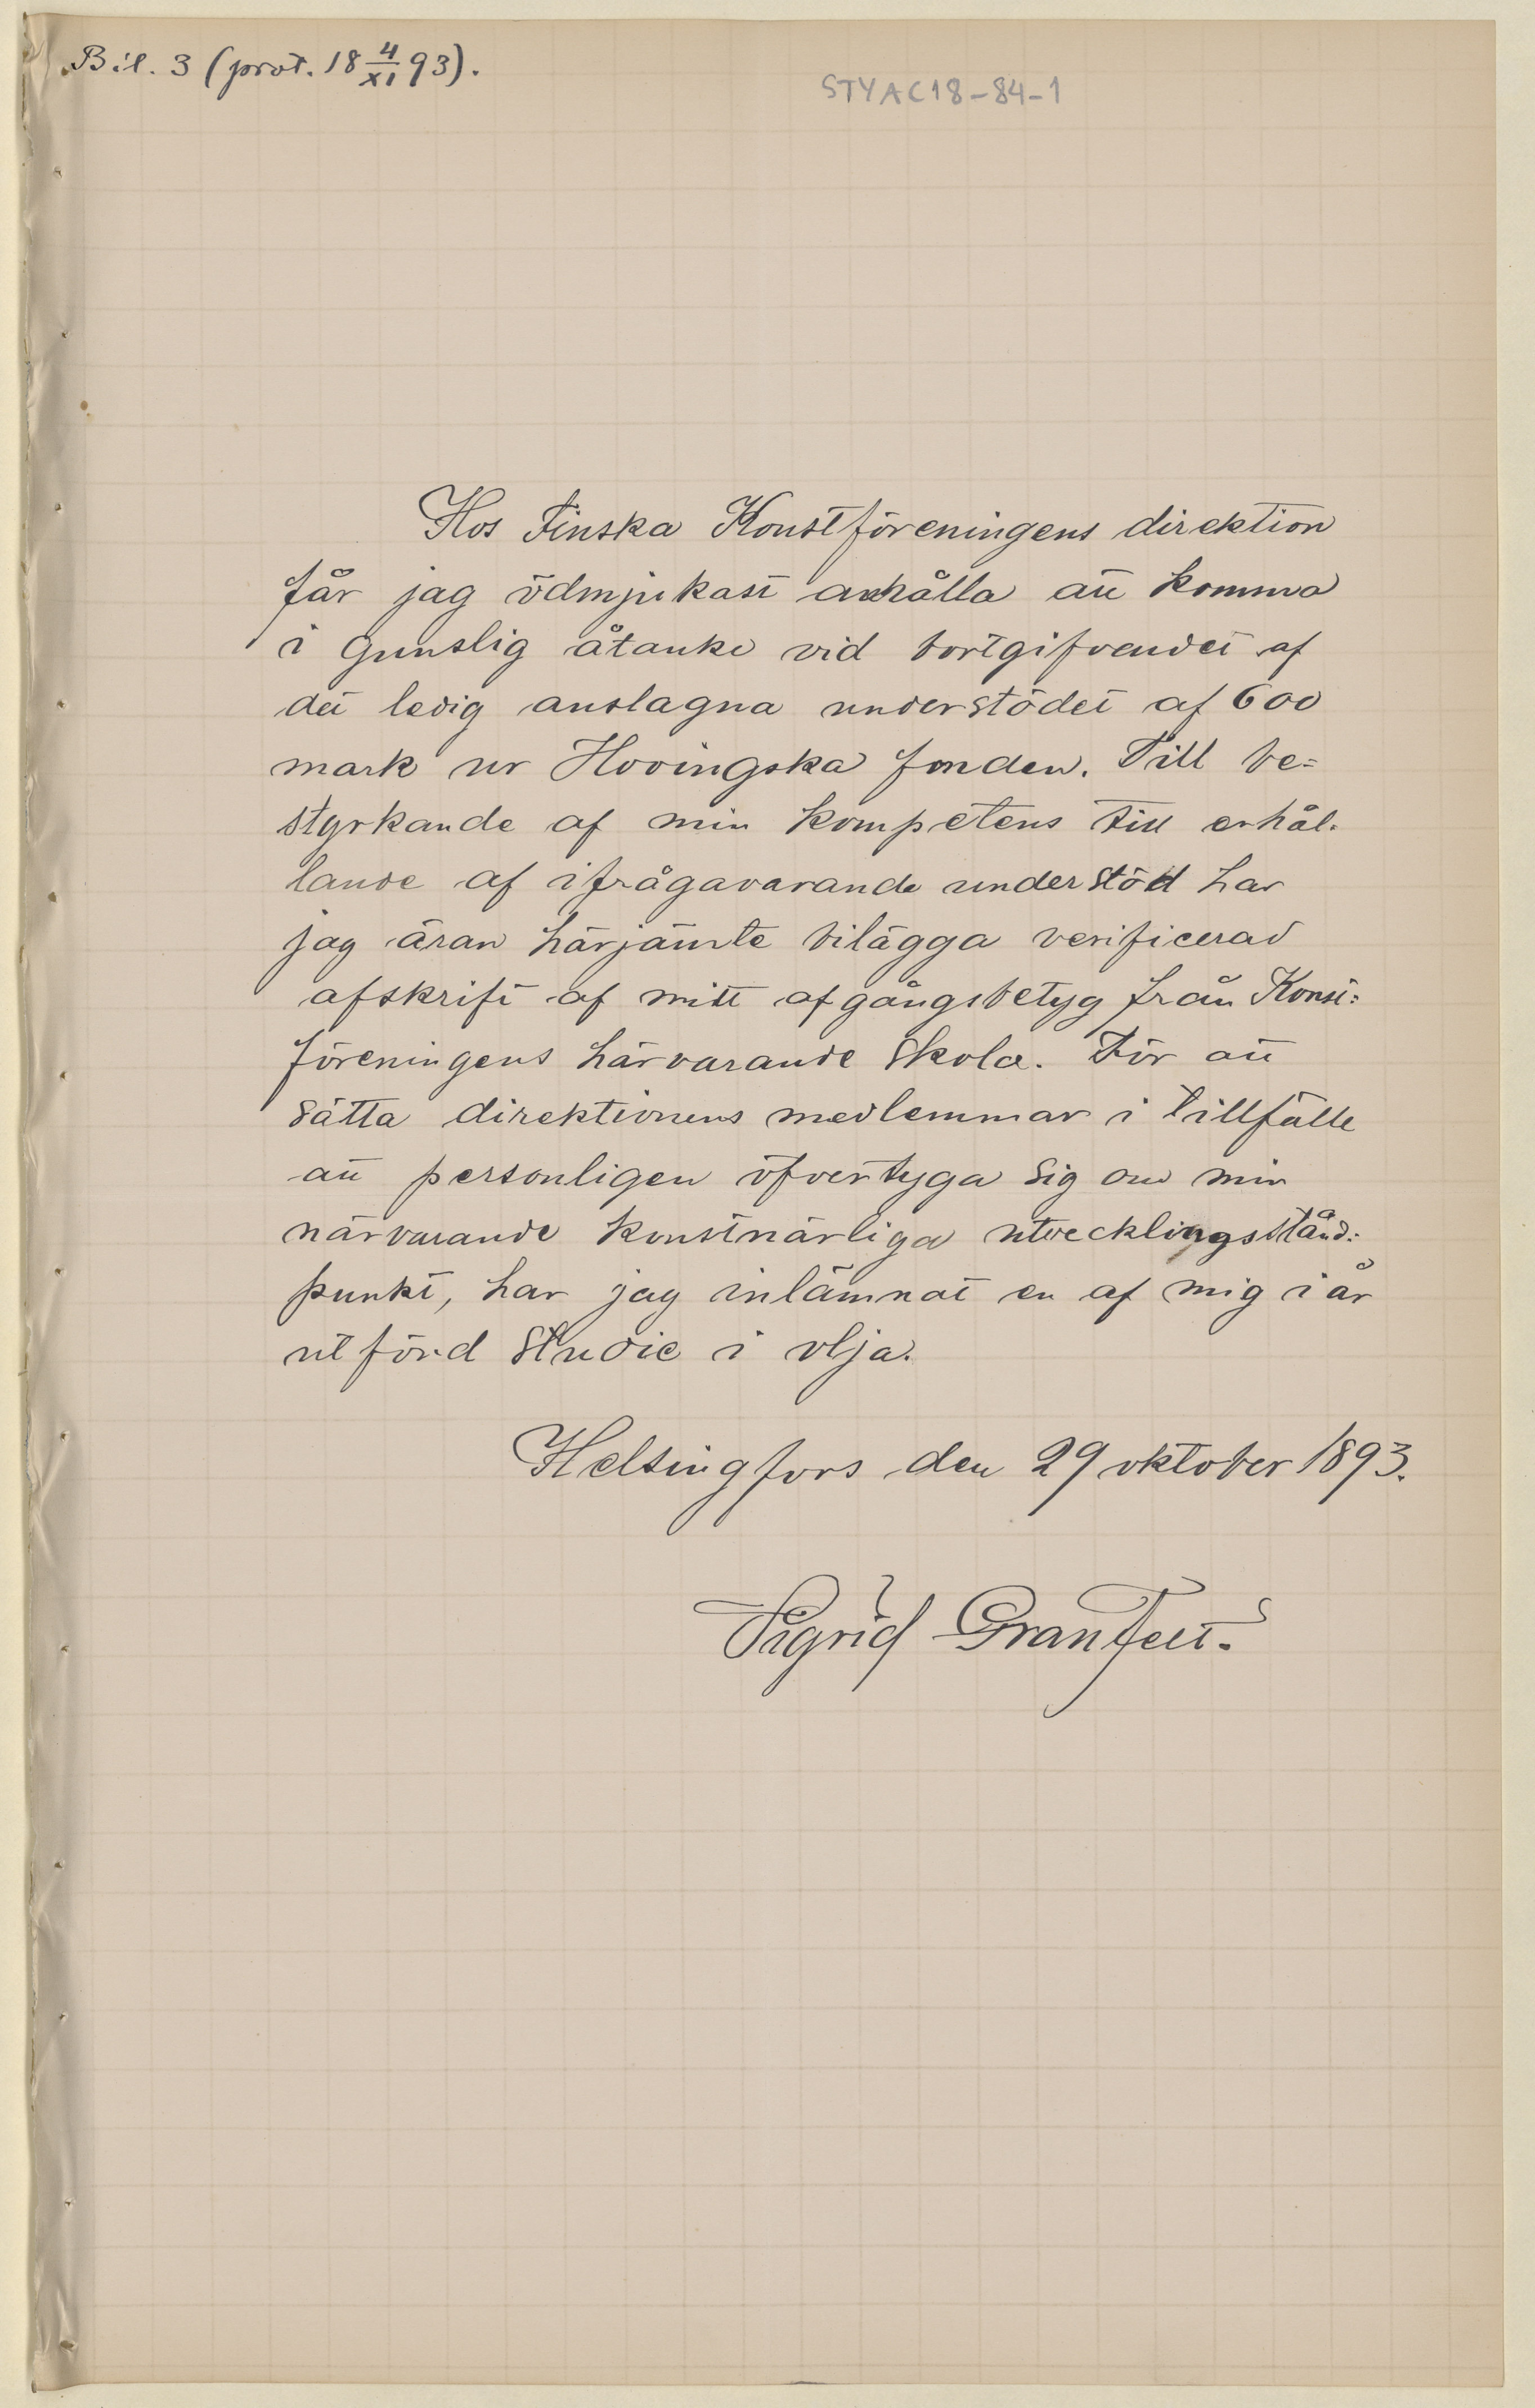 Bil. 3 (prot. 18 4/XI 93).
STYAC18-84-1
Hos Finska Konstföreningens direktion
får jag ödmjukast anhålla att komma
i gunstig åtanke vid bortgifvandet af
det ledig anslagna understödet af 600
mark ur Hovingska fonden. Till be=
styrkande af min kompetens till erhål-
lande af ifrågavarande understöd har
jag äran härjämte bilägga verificerad
afskrift af mitt afgångsbetyg från Konst=
föreningens härvarande skola. För att
sätta direktionens medlemmar i tillfälle
att personligen öfvertyga sig om min
närvarande konstnärliga utvecklingsstånd=
punkt, har jag inlämnat en af mig i år
utförd studie i olja.
Helsingfors den 29 oktober 1893.
Sigrid Granfelt.